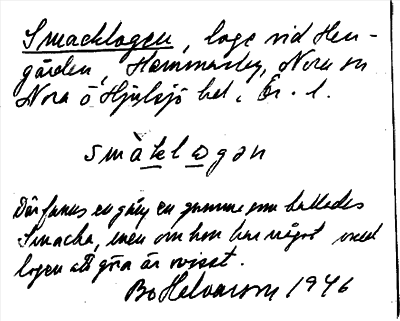 Smacklogen, loge vid Hem-
gården, Hammarby, Nora sn
Nora o Hjulsjö hd, Ör. l.
smàklogən
Där fanns en gång en gumma som kallades
Smacka, men om hon har något med
logen att göra är ovisst.
Bo Helvarson 1946